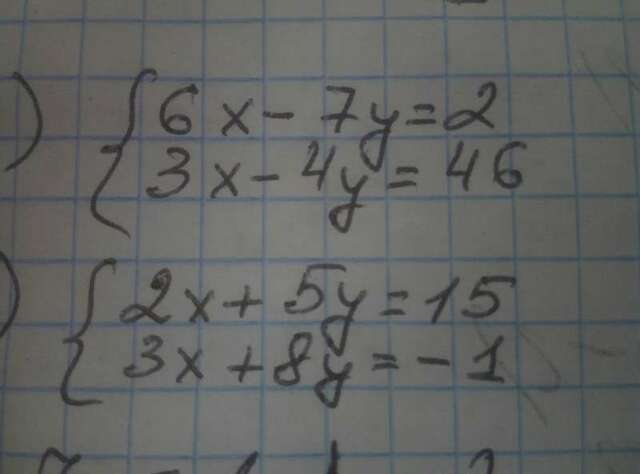 ) { 6x - 7y = 2
3x - 4y = 46
) { 2x + 5y = 15
3x + 8y = -1